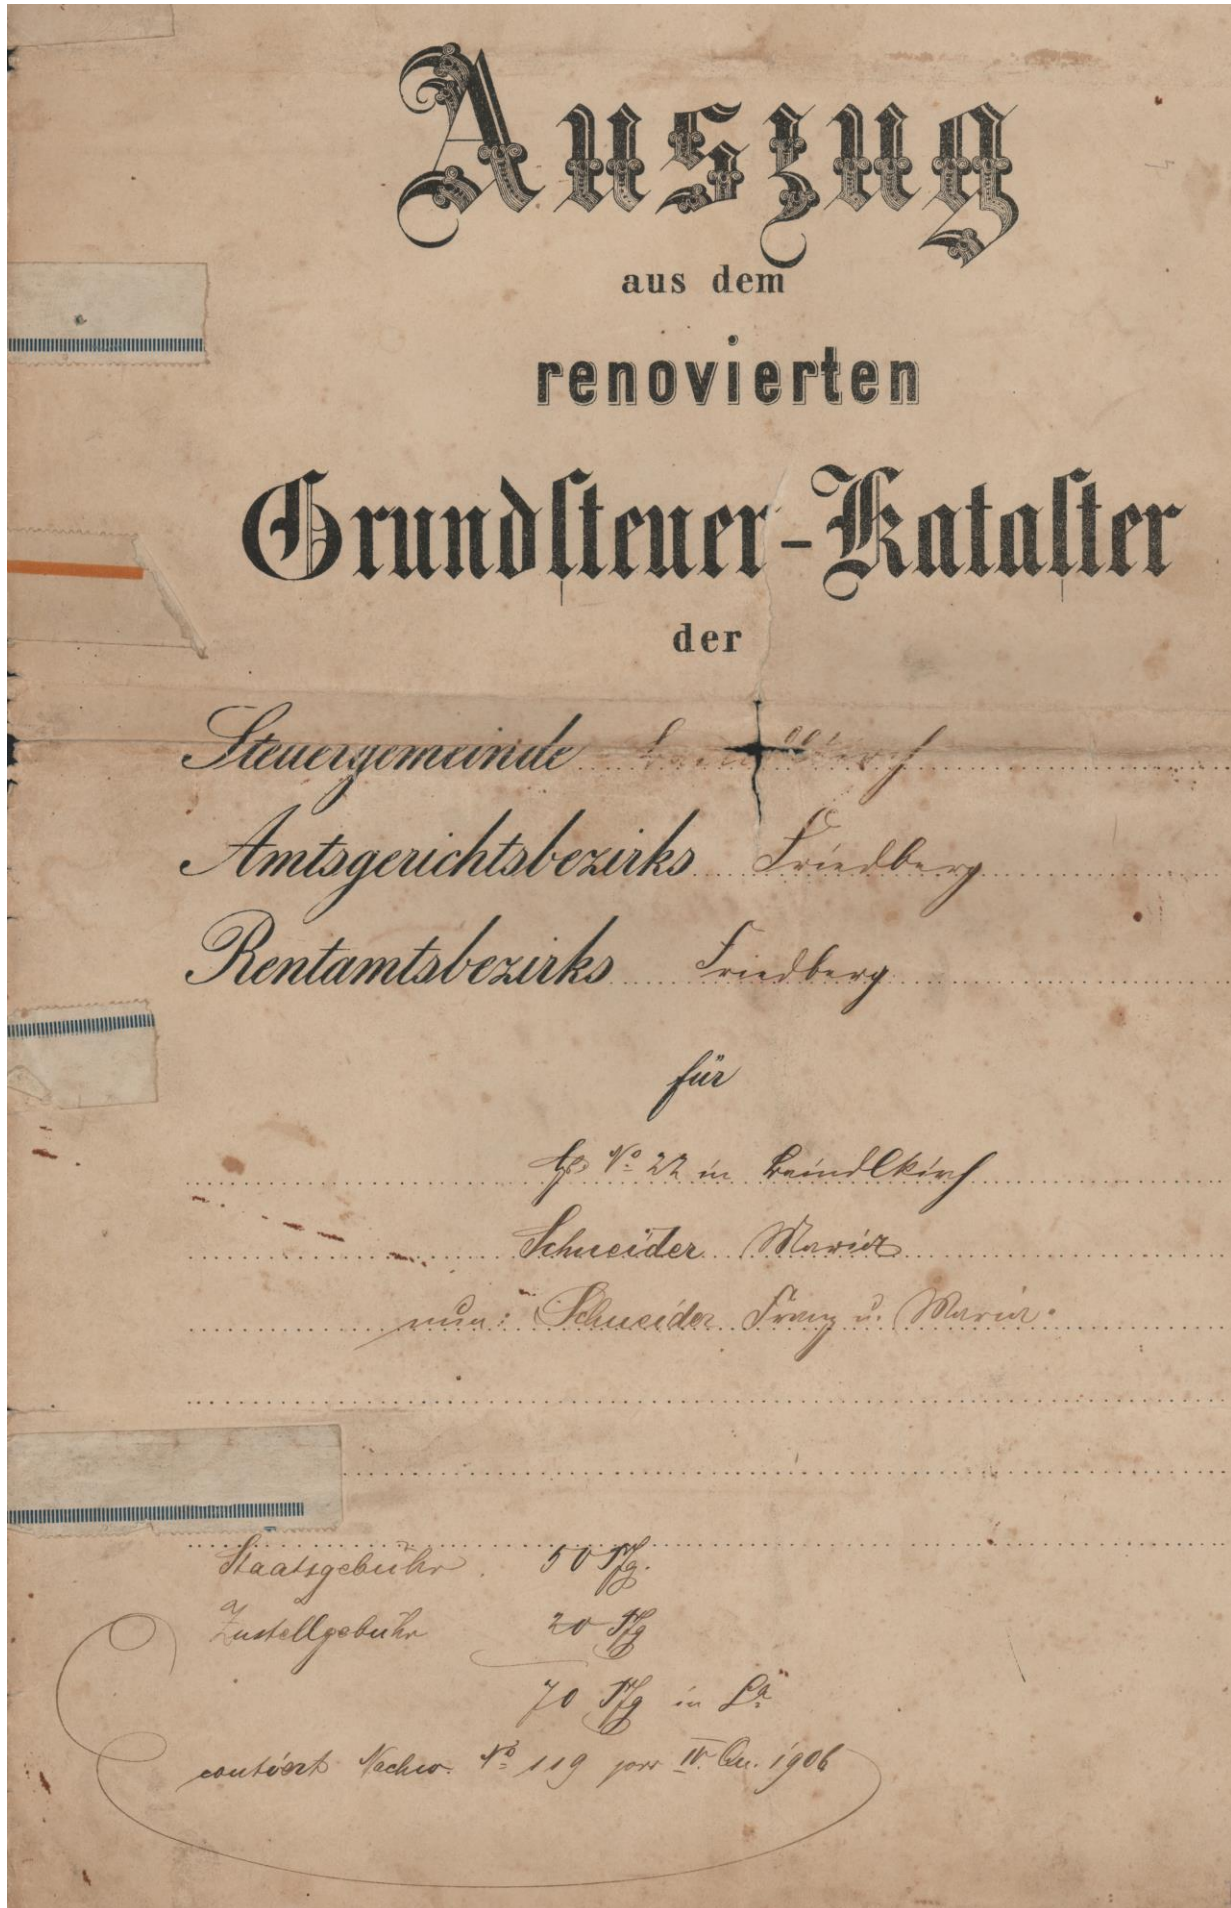 Auszug
aus dem
renovierten
Grundsteuer-Kataster
der
Steuergemeinde
Amtsgerichtsbezirks Friedberg
Rentamtsbezirks Friedberg
für
No 22 in Baindlkirch
Schneider Maria
nun: Schneider Franz u. Maria.
Staatsgebühr 50 Pfg.
Zustellgebühr 20 Pfg
70 Pfg in
contiert Nachw. No 119 pro IV. Qu. 1906